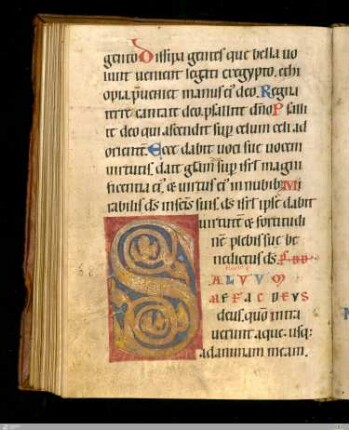 gento Dissipa gentes que bella uo
lunt uenient legati ex egypto. ethi
opia p̄ueniet manus ei' deo. Regna
terre cantate deo. psallite dn̄o Psalli
te deo qui ascendit sup celum celi ad
orientē. Ecce dabit uoci sue uocem
uirtutis. date gl̄am
magni
ficentia ei'. & uirtus ei' in nubib; Mi
rabilis ds̄ in sc̄is suis. ds̄ isr̄l ipse dabit
uirtutē & fortitudi
nē plebis sue be
nedictus ds̄.
ALVVM
ME FAC DEVS
deus. qm̄ intra
uerunt aque. usq;
ad animam meam.